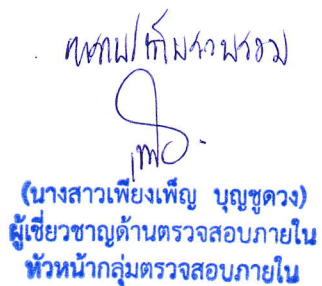 ทราบ/เก็บรวบรวม
(นางสาวเพียงเพ็ญ บุญชูดวง)
ผู้เชี่ยวชาญด้านตรวจสอบภายใน
หัวหน้ากลุ่มตรวจสอบภายใน